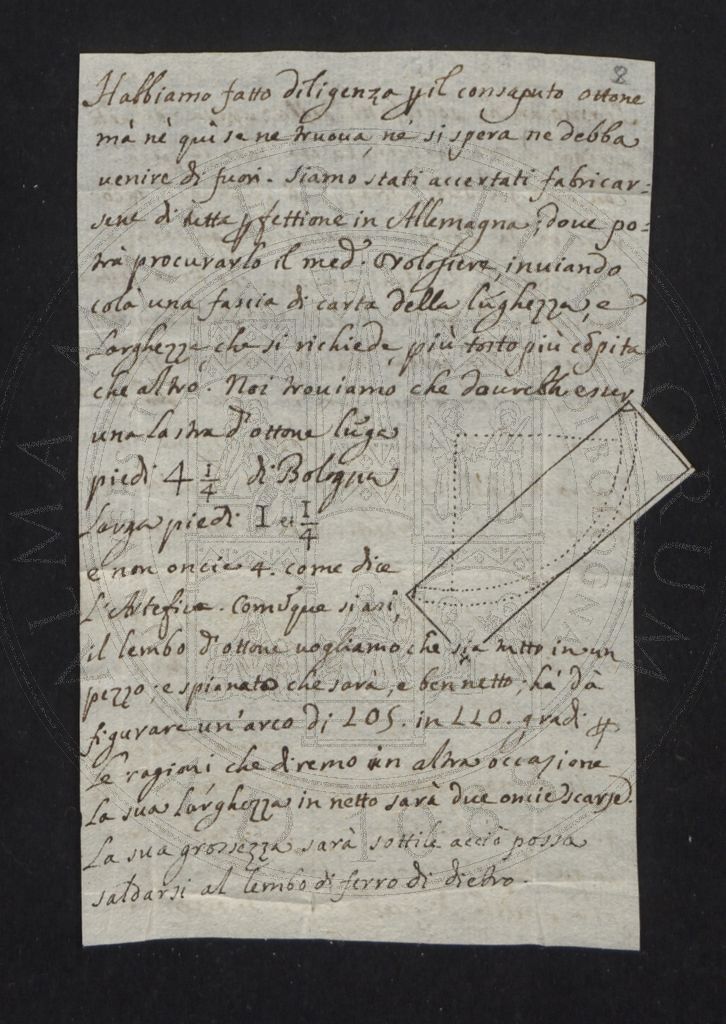 8
Habbiamo fatto diligenza p il consaputo ottone
mà nè quì se ne truova, nè si spera ne debba
venire di fuori. Siamo stati accertati fabricar=
sene di tutta pfettione in Allemagna, dove po=
trà procurarlo il med.º Orologiere, inviando
colà una fascia di carta della lũghezza, e
larghezza che si richiede, più tosto più cõpita
che altro. Noi troviamo che dourebbe esser
una lastra d'ottone lũga
piedi 4 1/4 di Bologna
larga piedi 1 et 1/4
e non oncie 4. come dice
L'Artefice. Comũque siasi,
il lembo d'ottone vogliamo che sia tutto in un
pezzo; e spianato che sarà, e ben netto; hà dà
figurare un'arco di 105. in 110. gradi p
le ragioni che diremo in altra occazione
La sua larghezza in netto sarà due oncie scarse.
La sua grossezza sarà sottile acciò possa
saldarsi al lembo di ferro di dietro.
ALMA MATER STUDIORUM
BONONIA